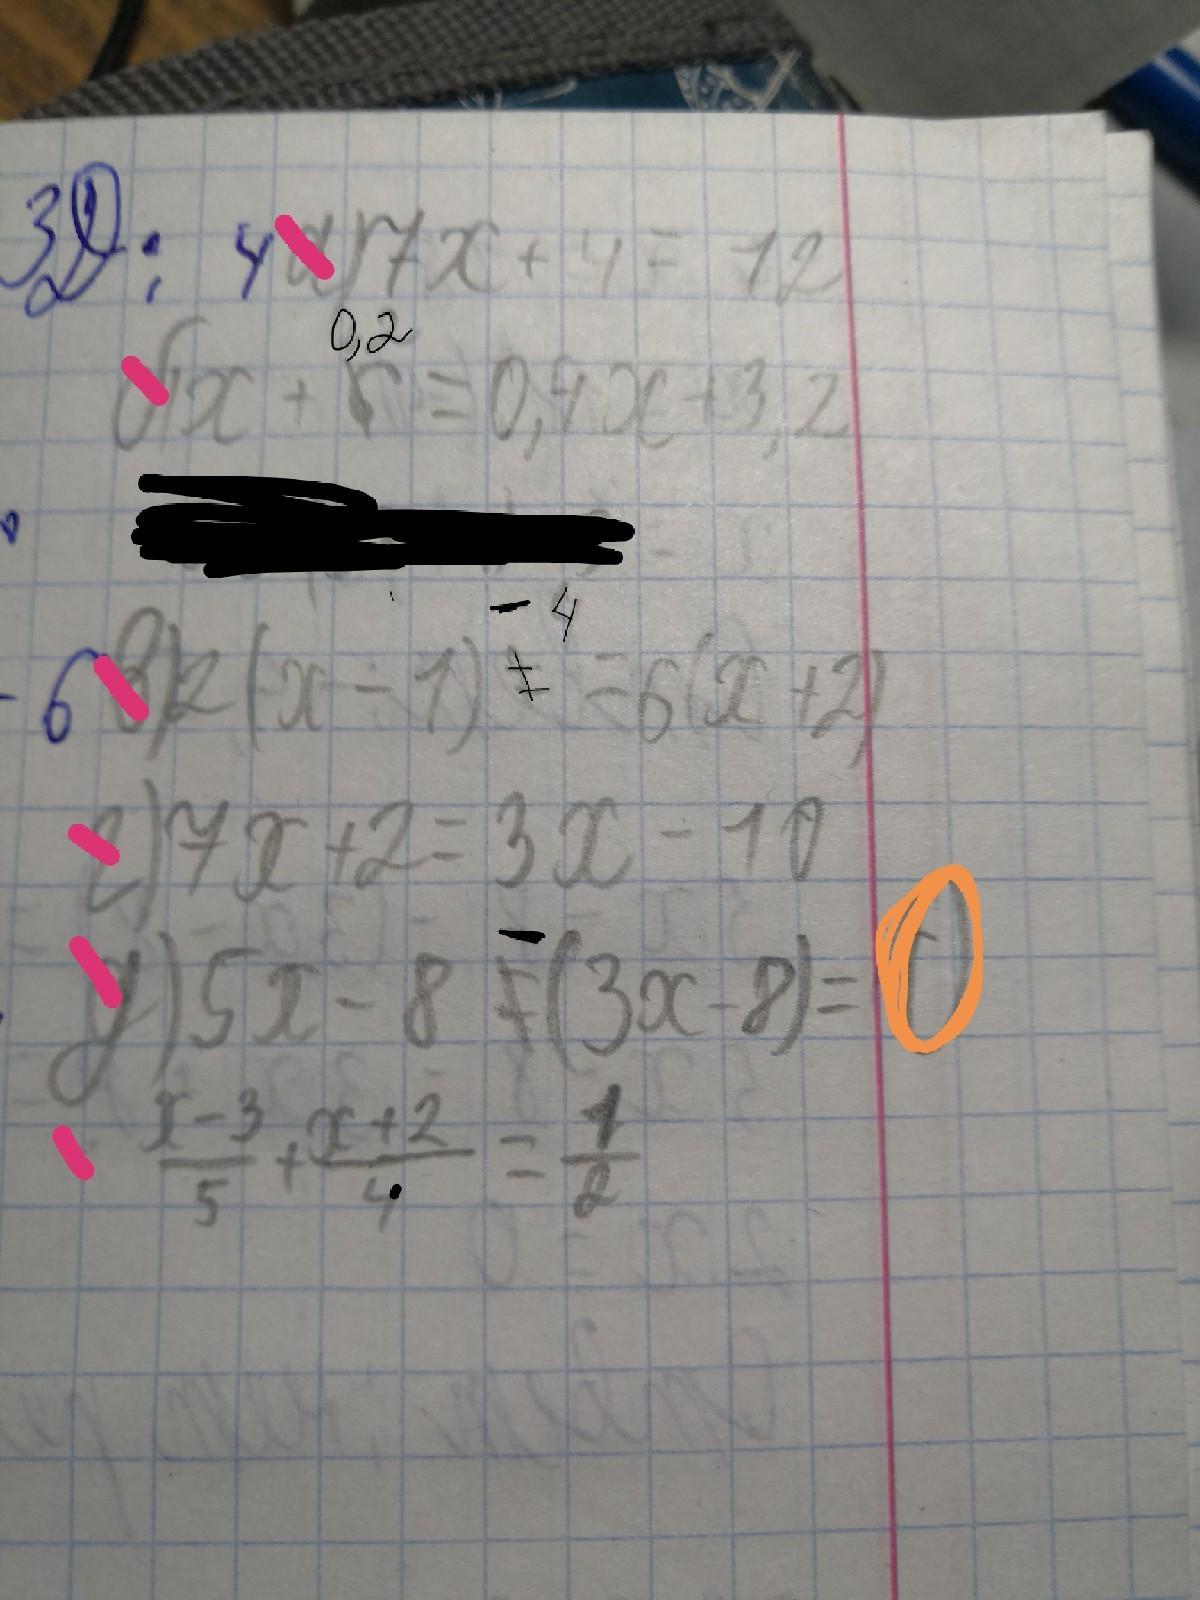 ЗД: 4 а) 7x + 4 = 12
0,2
б) x + = 0,4x + 3,2
- 4
- 6 в) 2(x - 1) = 6(x + 2)
г) 7x + 2 = 3x - 10
-
д) 5x - 8 (3x - 8) = 0
x - 3 / 5 + x + 2 / 4 = 1 / 2